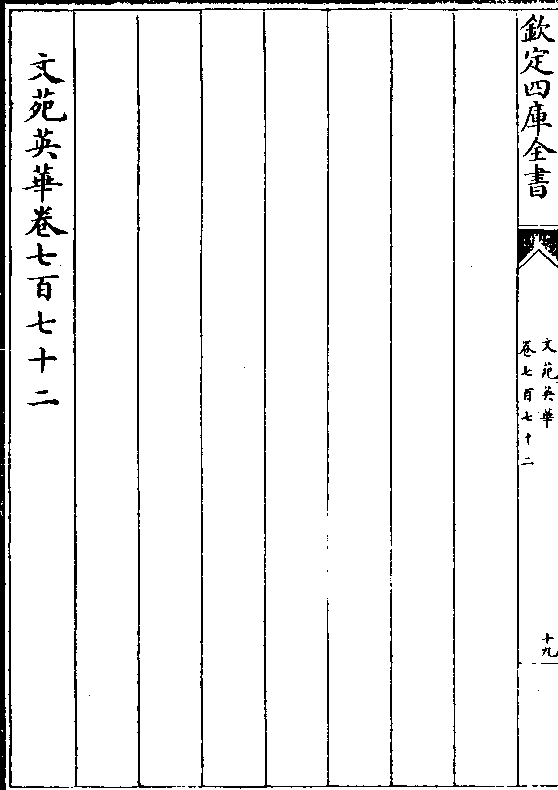 欽定四庫全書
文苑英華
卷七百七十二
十九
文苑英華卷七百七十二